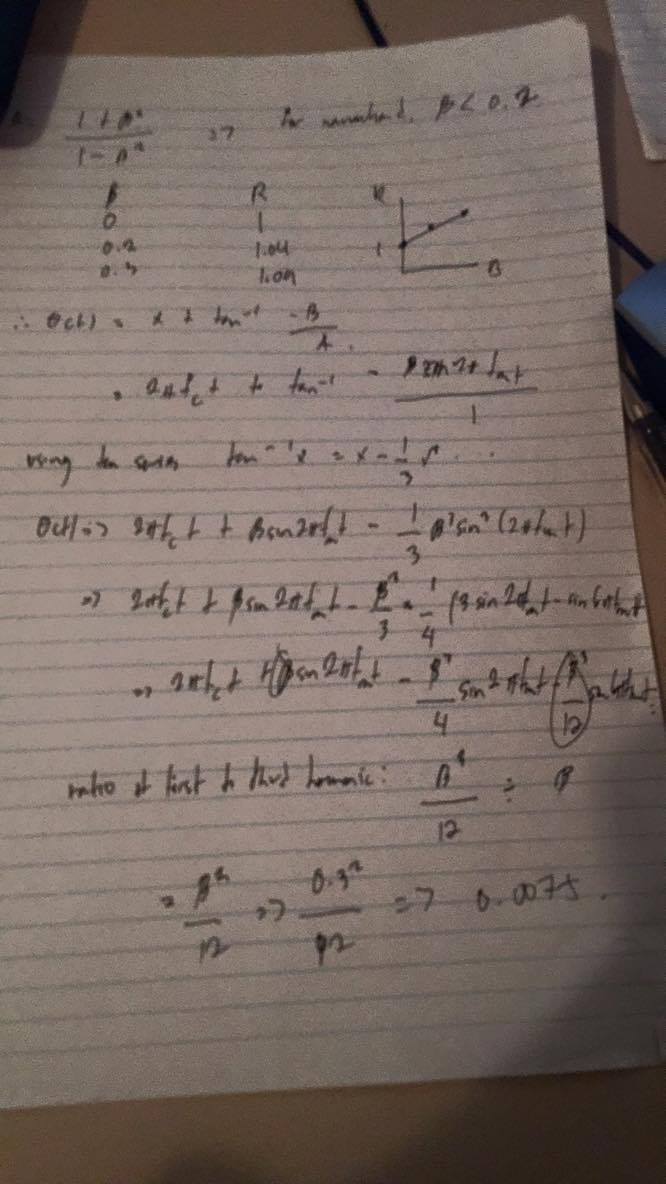 1 + β² / 1 - β² => for β < 0.2
β R R
0 1 1
0.2 1.04
0.3 1.09 B
∴ θ(t) = x + tan⁻¹ -B/A
= 2πf_c t + tan⁻¹ - β sin 2πf_m t / 1
using tan series tan⁻¹x = x - 1/3 x³ ...
θ(t) => 2πf_c t + β sin 2πf_m t - 1/3 β³ sin³ (2πf_m t)
=> 2πf_c t + β sin 2πf_m t - β³/3 × 1/4 (3 sin 2πf_m t - sin 6πf_m t)
=> 2πf_c t + β sin 2πf_m t - β³/4 sin 2πf_m t β³/12 sin 6πf_m t
ratio of first to third harmonic: β³/12 ÷ β
= β²/12 => 0.3²/12 => 0.0075.